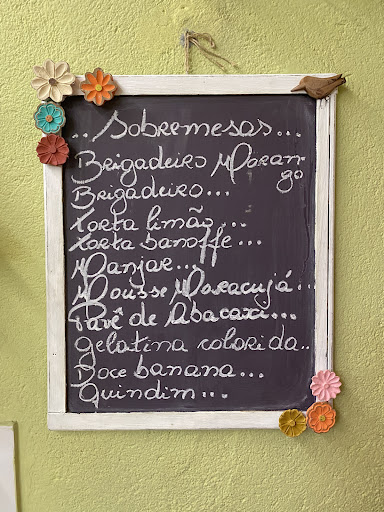 .. Sobremesas...
Brigadeiro Moran-
go
Brigadeiro...
torta limão...
torta banoffe...
Manjar...
Mousse Maracujá...
Pavê de Abacaxi...
gelatina colorida..
Doce banana...
Quindim...